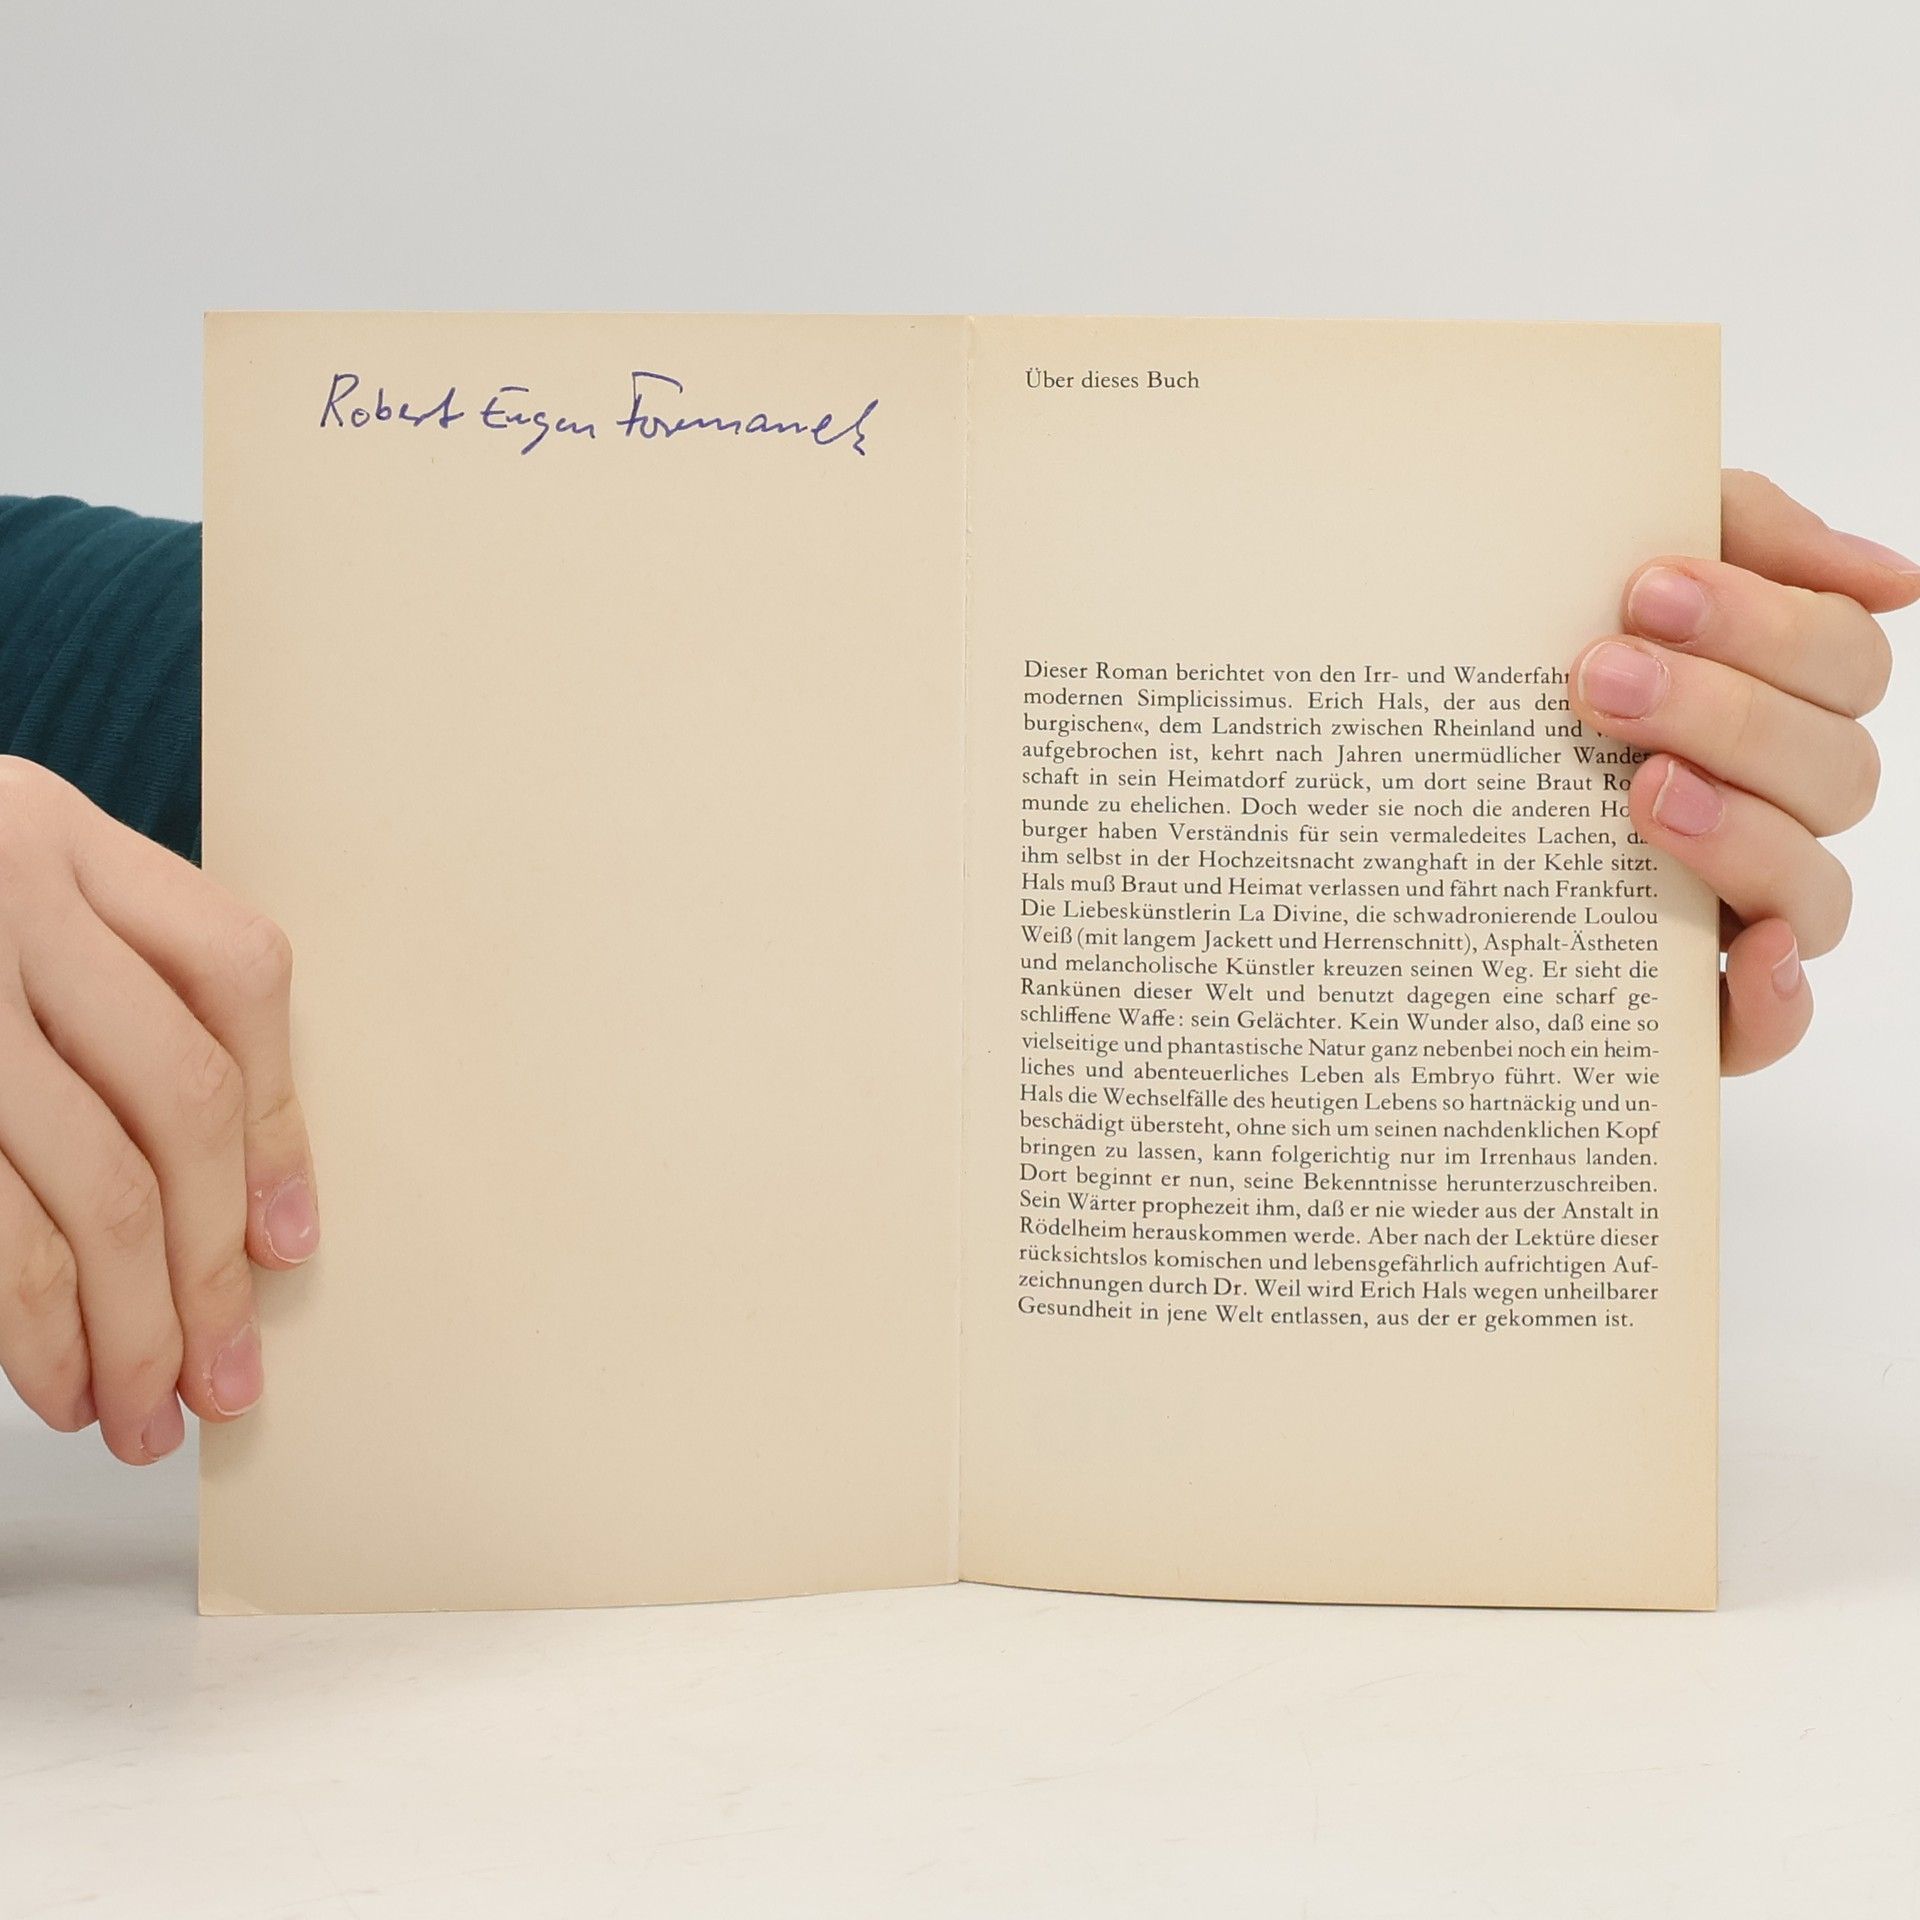 Robert Eugen Formanek
Über dieses Buch
Dieser Roman berichtet von den Irr- und
modernen Simplicissimus. Erich Hals, der aus
burgischen«, dem Landstrich zwischen Rheinland und
aufgebrochen ist, kehrt nach Jahren unermüdlicher Wander-
schaft in sein Heimatdorf zurück, um dort seine Braut
munde zu ehelichen. Doch weder sie noch die anderen
burger haben Verständnis für sein vermaledeites Lachen,
ihm selbst in der Hochzeitsnacht zwanghaft in der Kehle sitzt.
Hals muß Braut und Heimat verlassen und fährt nach Frankfurt.
Die Liebeskünstlerin La Divine, die schwadronierende Loulou
Weiß (mit langem Jackett und Herrenschnitt), Asphalt-Ästheten
und melancholische Künstler kreuzen seinen Weg. Er sieht die
Rankünen dieser Welt und benutzt dagegen eine scharf ge-
schliffene Waffe: sein Gelächter. Kein Wunder also, daß eine so
vielseitige und phantastische Natur ganz nebenbei noch ein heim-
liches und abenteuerliches Leben als Embryo führt. Wer wie
Hals die Wechselfälle des heutigen Lebens so hartnäckig und un-
beschädigt übersteht, ohne sich um seinen nachdenklichen Kopf
bringen zu lassen, kann folgerichtig nur im Irrenhaus landen.
Dort beginnt er nun, seine Bekenntnisse herunterzuschreiben.
Sein Wärter prophezeit ihm, daß er nie wieder aus der Anstalt in
Rödelheim herauskommen werde. Aber nach der Lektüre dieser
rücksichtslos komischen und lebensgefährlich aufrichtigen Auf-
zeichnungen durch Dr. Weil wird Erich Hals wegen unheilbarer
Gesundheit in jene Welt entlassen, aus der er gekommen ist.